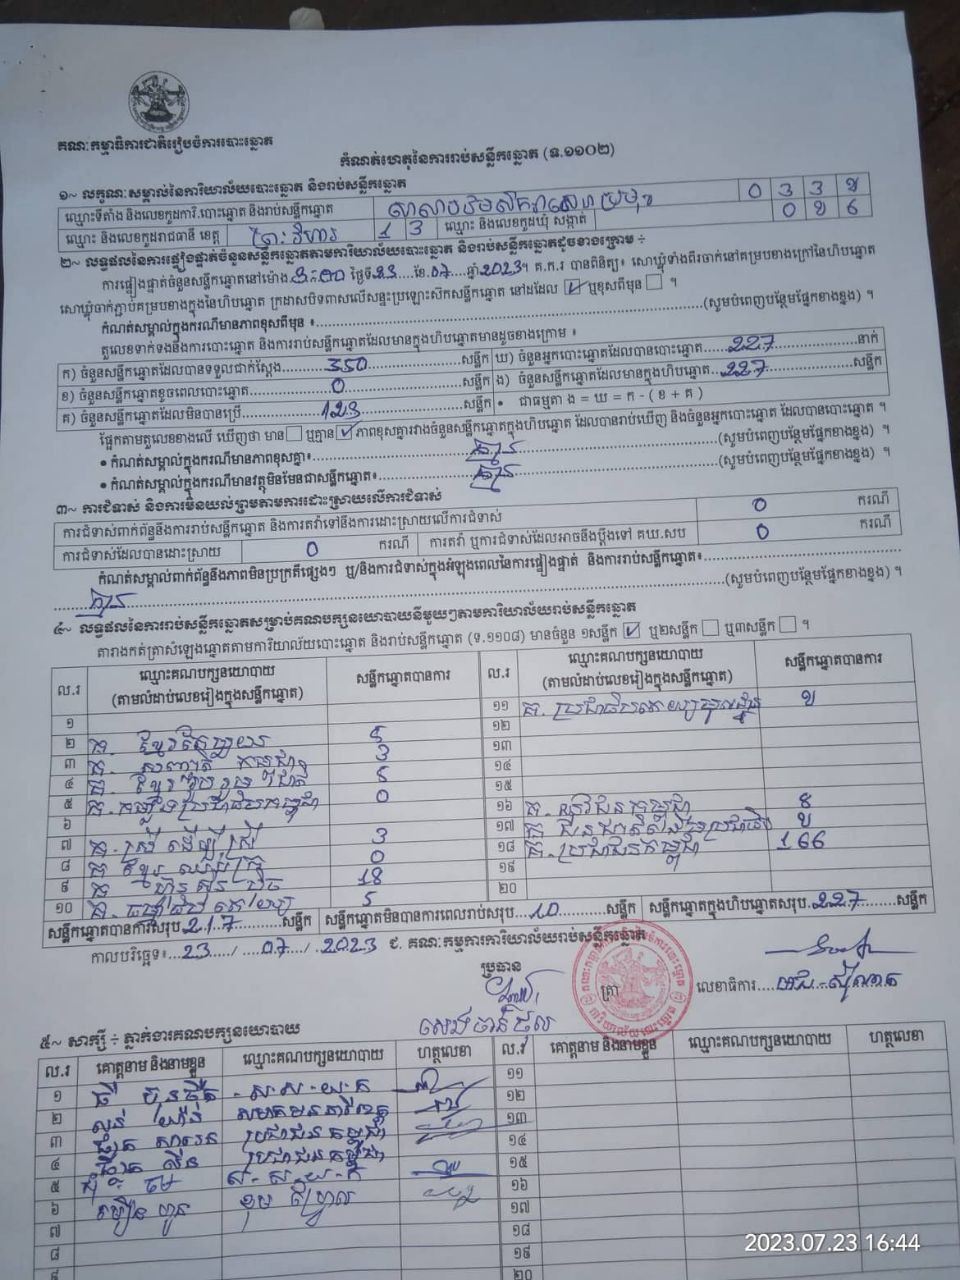 គណៈកម្មាធិការជាតិរៀបចំការបោះឆ្នោត
កំណត់ហេតុនៃការរាប់សន្លឹកឆ្នោត (ទ.១១០២)
១~ លក្ខណៈសម្គាល់នៃការិយាល័យបោះឆ្នោត និងរាប់សន្លឹកឆ្នោត
ឈ្មោះទីតាំង និងលេខកូដការិ.បោះឆ្នោត និងរាប់សន្លឹកឆ្នោត 0 3 3 ២
ឈ្មោះ និងលេខកូដរាជធានី ខេត្ត ព្រះវិហារ 1 3 ឈ្មោះ និងលេខកូដឃុំ សង្កាត់ 0 ២ 6
២~ លទ្ធផលនៃការផ្ទៀងផ្ទាត់ចំនួនសន្លឹកឆ្នោតតាមការិយាល័យបោះឆ្នោត និងរាប់សន្លឹកឆ្នោតដូចខាងក្រោម ÷
ការផ្ទៀងផ្ទាត់ចំនួនសន្លឹកឆ្នោតនៅម៉ោង 3:00 ថ្ងៃទី 23 ខែ 07 ឆ្នាំ 2023។ គ.ក.រ បានពិនិត្យ៖ សោឃ្លុំទាំងពីរចាក់នៅគម្របខាងក្រៅនៃហិបឆ្នោត
សោឃ្លុំចាក់ភ្ជាប់គម្របខាងក្នុងនៃហិបឆ្នោត ក្រដាសបិទពាសលើសន្ទះប្រឡោះស៊ីកសន្លឹកឆ្នោត នៅដដែល ☑ ឬខុសពីមុន ☐ ។
កំណត់សម្គាល់ក្នុងករណីមានភាពខុសពីមុន ៖ (សូមបំពេញបន្ថែមផ្នែកខាងខ្នង) ។
តួលេខទាក់ទងនឹងការបោះឆ្នោត និងការរាប់សន្លឹកឆ្នោតដែលមានក្នុងហិបឆ្នោតមានដូចខាងក្រោម ៖
ក) ចំនួនសន្លឹកឆ្នោតដែលបានទទួលជាក់ស្តែង 350 សន្លឹក ឃ) ចំនួនអ្នកបោះឆ្នោតដែលបានបោះឆ្នោត 227 នាក់
ខ) ចំនួនសន្លឹកឆ្នោតខូចពេលបោះឆ្នោត 0 សន្លឹក ង) ចំនួនសន្លឹកឆ្នោតដែលមានក្នុងហិបឆ្នោត 227 សន្លឹក
គ) ចំនួនសន្លឹកឆ្នោតដែលមិនបានប្រើ 123 សន្លឹក • ជាធម្មតា ង = ឃ = ក - ( ខ + គ )
ផ្អែកតាមតួលេខខាងលើ ឃើញថា មាន ☐ ឬគ្មាន ☑ ភាពខុសគ្នារវាងចំនួនសន្លឹកឆ្នោតក្នុងហិបឆ្នោត ដែលបានរាប់ឃើញ និងចំនួនអ្នកបោះឆ្នោត ដែលបានបោះឆ្នោត ។
• កំណត់សម្គាល់ក្នុងករណីមានភាពខុសគ្នា៖ គ្មាន (សូមបំពេញបន្ថែមផ្នែកខាងខ្នង) ។
• កំណត់សម្គាល់ក្នុងករណីមានវត្ថុមិនមែនជាសន្លឹកឆ្នោត៖ គ្មាន (សូមបំពេញបន្ថែមផ្នែកខាងខ្នង) ។
៣~ ការជំទាស់ និងការមិនយល់ព្រមតាមការដោះស្រាយលើការជំទាស់
ការជំទាស់ពាក់ព័ន្ធនឹងការរាប់សន្លឹកឆ្នោត និងការតវ៉ាទៅនឹងការដោះស្រាយលើការជំទាស់ 0 ករណី
ការជំទាស់ដែលបានដោះស្រាយ 0 ករណី ការតវ៉ា ឬការជំទាស់ដែលអាចនឹងប្តឹងទៅ គឃ.សប 0 ករណី
កំណត់សម្គាល់ពាក់ព័ន្ធនឹងភាពមិនប្រក្រតីផ្សេងៗ ឬ/និងការជំទាស់ក្នុងអំឡុងពេលនៃការផ្ទៀងផ្ទាត់ និងការរាប់សន្លឹកឆ្នោត៖
គ្មាន (សូមបំពេញបន្ថែមផ្នែកខាងខ្នង) ។
៤~ លទ្ធផលនៃការរាប់សន្លឹកឆ្នោតសម្រាប់គណបក្សនយោបាយនីមួយៗតាមការិយាល័យរាប់សន្លឹកឆ្នោត
តារាងកត់ត្រាសំឡេងឆ្នោតតាមការិយាល័យបោះឆ្នោត និងរាប់សន្លឹកឆ្នោត (ទ.១១០៨) មានចំនួន ១សន្លឹក ☑ ឬ២សន្លឹក ☐ ឬ៣សន្លឹក ☐ ។
ល.រ ឈ្មោះគណបក្សនយោបាយ (តាមលំដាប់លេខរៀងក្នុងសន្លឹកឆ្នោត) សន្លឹកឆ្នោតបានការ ល.រ ឈ្មោះគណបក្សនយោបាយ (តាមលំដាប់លេខរៀងក្នុងសន្លឹកឆ្នោត) សន្លឹកឆ្នោតបានការ
១ ១១ ២
២ 5 ១២
៣ 3 ១៣
៤ ១៤
៥ 0 ១៥
៦ ១៦ គ. យុវជនកម្ពុជា 8
៧ 3 ១៧ ២
៨ 0 ១៨ គ. ប្រជាជនកម្ពុជា 166
៩ 18 ១៩
១០ 5 ២០
សន្លឹកឆ្នោតបានការសរុប 217 សន្លឹក សន្លឹកឆ្នោតមិនបានការពេលរាប់សរុប 10 សន្លឹក សន្លឹកឆ្នោតក្នុងហិបឆ្នោតសរុប 227 សន្លឹក
កាលបរិច្ឆេទ៖ 23 / 07 / 2023 ៩. គណៈកម្មការការិយាល័យរាប់សន្លឹកឆ្នោត
ប្រធាន ត្រា លេខាធិការ
៥~ សាក្សី ÷ ភ្នាក់ងារគណបក្សនយោបាយ
ល.រ គោត្តនាម និងនាមខ្លួន ឈ្មោះគណបក្សនយោបាយ ហត្ថលេខា ល.រ គោត្តនាម និងនាមខ្លួន ឈ្មោះគណបក្សនយោបាយ ហត្ថលេខា
១ ស.ស.យ.ក ១១
២ ១២
៣ ប្រជាជនកម្ពុជា ១៣
៤ ប្រជាជនកម្ពុជា ១៤
៥ ស.ស.យ.ក ១៥
៦ ១៦
៧ ១៧
៨ ១៨
៩ ១៩
២០
2023.07.23 16:44